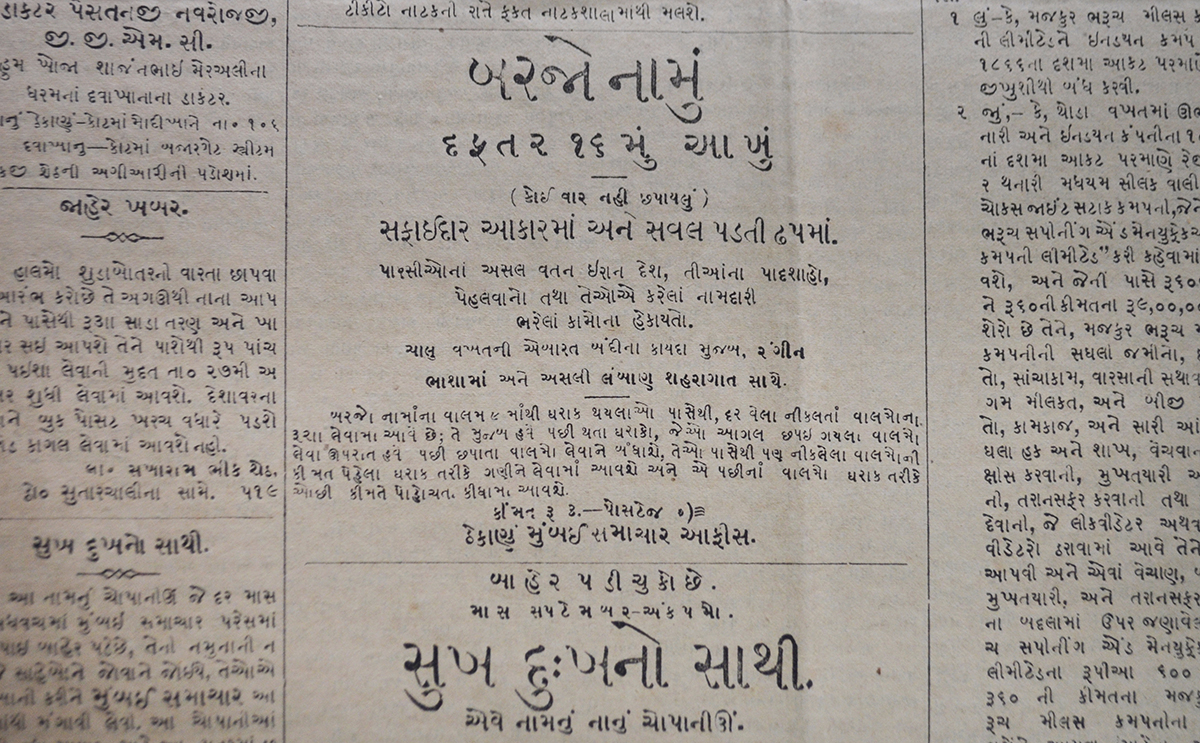 ડાક્ટર પેસતનજી નવરોજજી,
જી. જી. એમ. સી.
હુમ ખોજા શાજંનભાઈ મેરઅલીના
ધરમનાં દવાખાનાના ડાકટર.
નું ઠેકાણું—કોટમાં મોદીખાને ના૦ ૧૦૬
દવાખાનુ—કોટમાં બજારગેટ સ્ત્રીટમ
શેઠની અગીઆરીની પડોશમાં.
જાહેર ખબર.
હાલમાે શુડાબોતરનો વારતા છાપવા
આરંભ કરોછે તે અગઊથી નાના આપ
ને પાસેથી રૂ૩ાા સાડા તરણ અને ખા
ર સઈ આપશે તેને પાશેથી રૂપ પાંચ
પઈશા લેવાની મુદત તા૦ ૨૭મી અ
ર શુધી લેવામાં આવશે. દેશાવરના
ને બુક પોસટ ખરચ વધારે પડશે
કાગલ લેવામાં આવશે નહી.
લા૦ સખારામ ભીક શેઠ.
ઠે૦ સુતારચાલીના સામે. ૫૧૯
સુખ દુખનો સાથી.
આ નામનું ચોપાનીઊં જે દર માસ
મુંબઈ સમાચાર પરેસમાં
બાહેર પડેછે, તેનો નમુનાની ન
સાહેબોને જોવાને જોઈયે, તેઓએ
કરીને મુંબઈ સમાચાર આ
થી મંગાવી લેવો. આ ચોપાનીઆં
ટીકીટો નાટકની રાતે ફકત નાટકશાલામાંથી મલશે.
બરજો નામું
દફતર ૧૬મું આખું
( કોઈ વાર નહી છપાયલું )
સફાઈદાર આકારમાં અને સવલ પડતી ઢપમાં.
પારસીઓનાં અસલ વતન ઈરાન દેશ, તીઆંના પાદશાહો,
પેહલવાનો તથા તેઓએ કરેલાં નામદારી
ભરેલાં કામોના હેકાયતો.
ચાલુ વખતની એબારત બંદીના કાયદા મુજબ, રંગીન
ભાશામાં અને અસલી લંબાણ શહરાગાત સાથે.
બરજો નામાંના વાલમ ૯ માંથી ધરાક થયલાઓ પાસેથી, દર વેલા નીકલતાં વાલમોના
રૂ૨ાા લેવામાં આવે છે; તે મુજબ હવે પછી થતા ધરાકો, જેઓ આગલ છપઈ ગયલા વાલમો
લેવા ઊપરાત હવે પછી છપાતા વાલમો લેવાને બંધાશે, તેઓ પાસેથી પણ નીકલેલા વાલમોની
કીમત પેહેલા ધરાક તરીકે ગણીને લેવામાં આવશે અને એ પછીનાં વાલમો ધરાક તરીકે
ઓછી કીમતે પોહોચતા કીધામાં આવશે.
કીંમત રૂ ૩.—પોસટેજ ૦)≡
ઠેકાણું મુંબઈ સમાચાર આફીસ.
બાહેર પડી ચુકો છે.
માસ સપટેમબર-અંક ૫મો.
સુખ દુઃખનો સાથી.
એવે નામનું નાનું ચોપાનીઊં.
૧ લું-કે, મજકુર ભરૂચ મીલસ ક
ની લીમીટેડને ઈનડયન કમપ
૧૮૬૬ના દશમા આકટ પરમાણે
જીખુશીથી બંધ કરવી.
૨ જું,- કે, થોડા વખતમાં ઊભ
નારી અને ઈનડયન કંપનીના ૧
નાં દશમા આકટ પરમાણે રે
ર થનારી મધયમ સીલક વાલી
ચોકસ જાઈંટ સટાક કમપની, જેને
ભરૂચ સપીનીંગ ઍંડ મેનયુફેકચ
કમપની લીમીટેડ" કરી કહેવામાં
વશે, અને જેની પાસે રૂ૬૦
ને રૂ૬૦ની કીમતના રૂ૯,૦૦,૦૦
શેરો છે તેને, મજકુર ભરૂચ મ
કમપનીની સઘલી જમીનો,
તો, સાંચાકામ, વારસાની સથાવ
ગમ મીલકત, અને બીજી
તો, કામકાજ, અને સારી આં
ઘલા હક અને શાખ, વેંચવાન
ક્ષીસ કરવાની, મુખતયારી અ
નો, તરાનસફર કરવાનો તથા
દેવાનો, જે લીકવીડેટર અથવ
વીડેટરો ઠરાવામાં આવે તેને
આપવી અને એવાં વેચાણ,
મુખતયારી, અને તરાનસફર
ના બદલામાં ઉપર જણાવેલ
ચ સપીનીંગ ઍંડ મેનયુફેક
લીમીટેડના રૂપીઆ ૬૦૦
રૂ૬૦ ની કીમતના મજક
રૂચ મીલસ કમપનીના